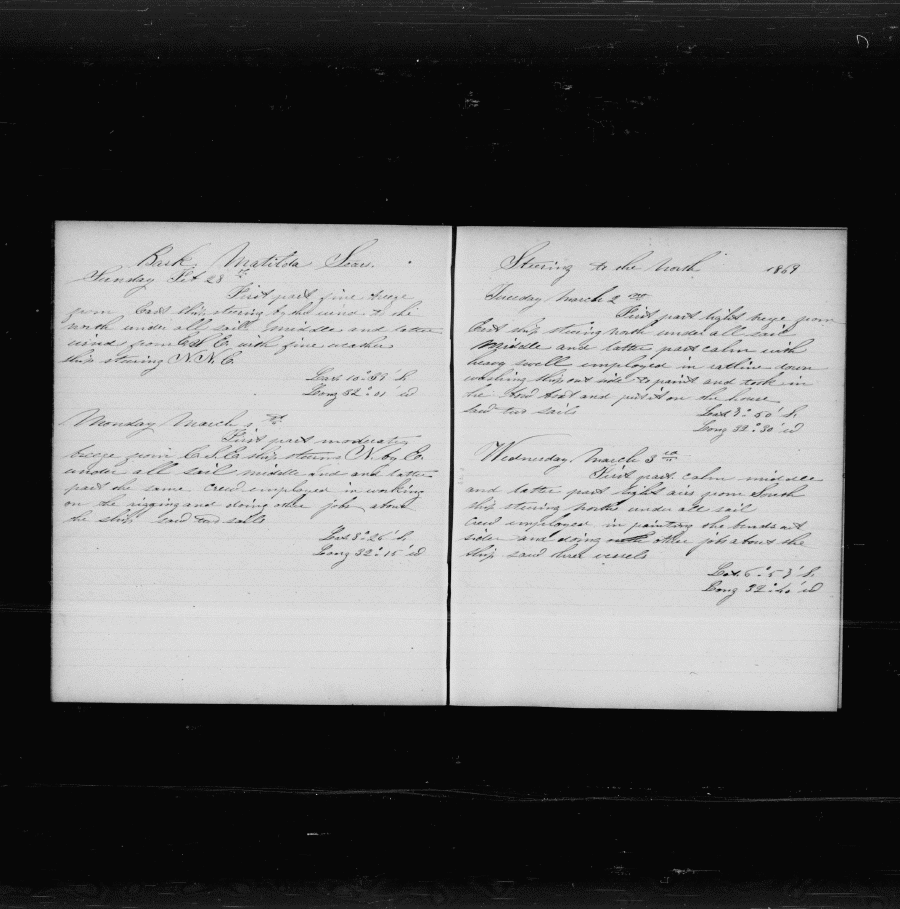 Bark Matilda Sears.
Sunday Feb 28th
First part fine breeze
from East ship steering by the wind to the
north under all sail middle and latter
winds from E with fine weather
ship steering N.N.E
Lat 10° 39' S.
Long 32° 01' W
Monday March 1st
First part moderate
breeze from E.S.E ship steering N. by E.
under all sail middle and and latter
part the same crew employed in working
on the rigging and doing other jobs about
the ship. saw two sails
Lat 8° 26' S.
Long 32° 15' W
Steering to the North 1869
Tuesday March 2nd
First part light breeze from
East ship steering north under all sail
Middle and latter part calm with
heavy swell employed in down
washing ship out side to paint and took in
the boat and put it on the house
saw two sails
Lat 7° 50' S.
Long 32° 30' W
Wednesday March 3rd
First part calm middle
and latter part light airs from South
ship steering north under all sail
crew employed in painting the out
sides and doing other jobs about the
ship saw three vessels
Lat. 6° 57' S.
Long 32° 40' W